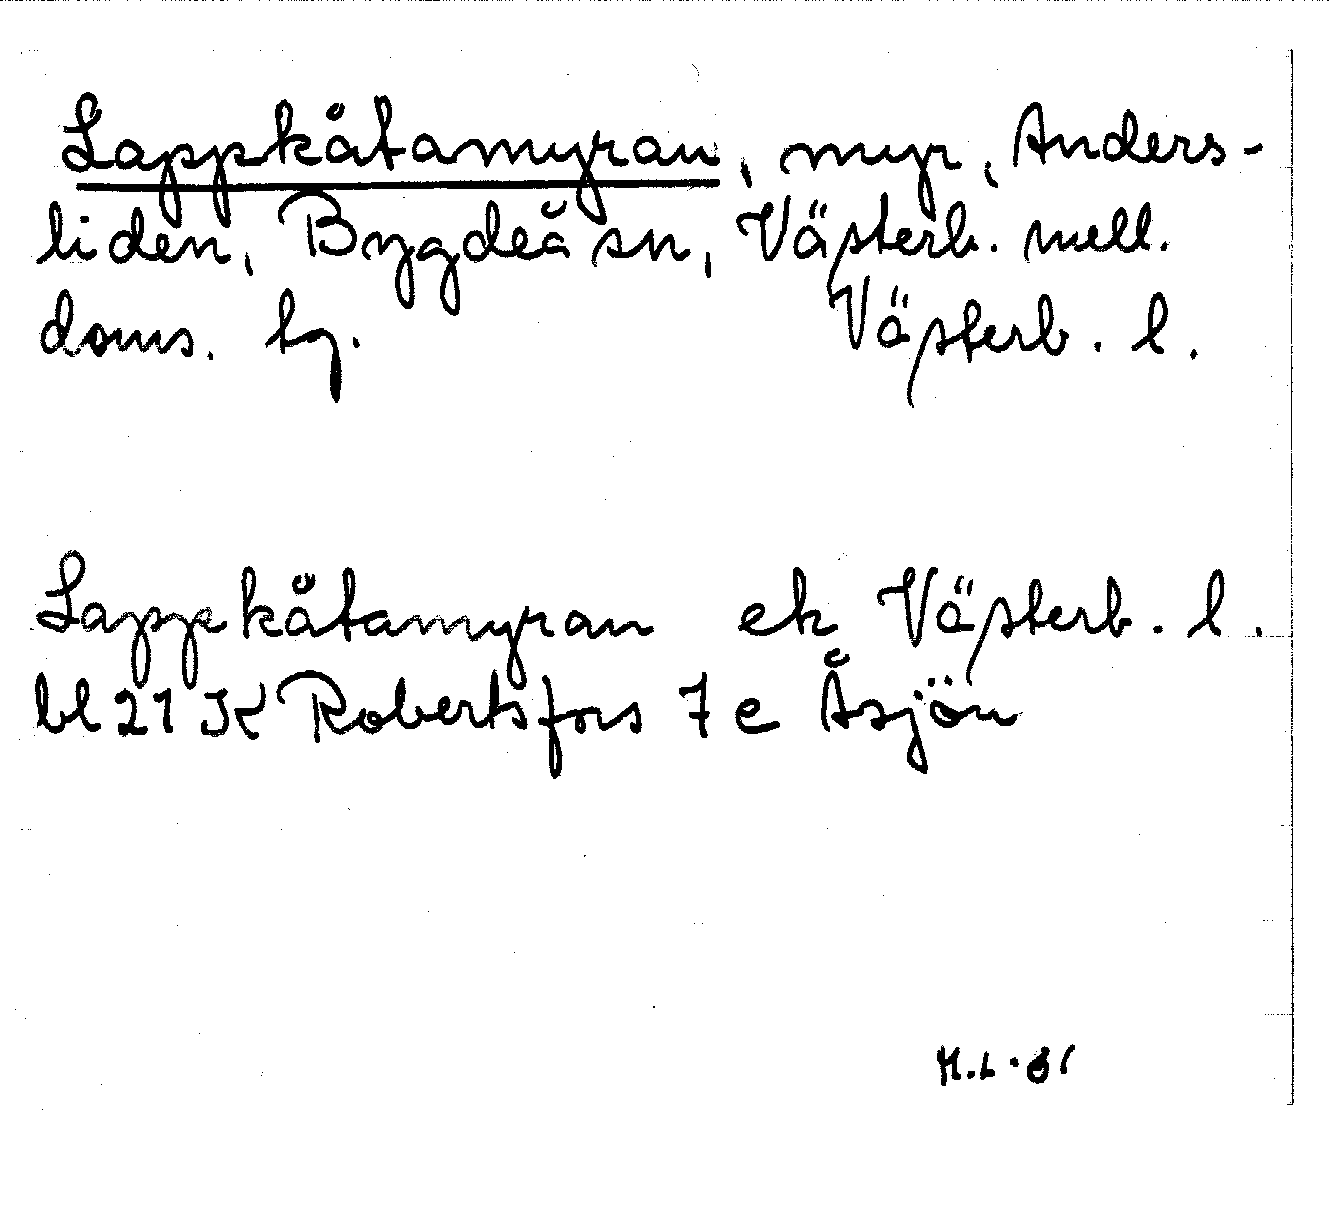 Lappkåtamyran, myr, Anders-
liden, Bygdeå sn, Västerb. mell.
doms. tg. Västerb. l.
Lappkåtamyran ek Västerb. l.
bl 21 K Robertsfors 7 e Åsjön
H.L.